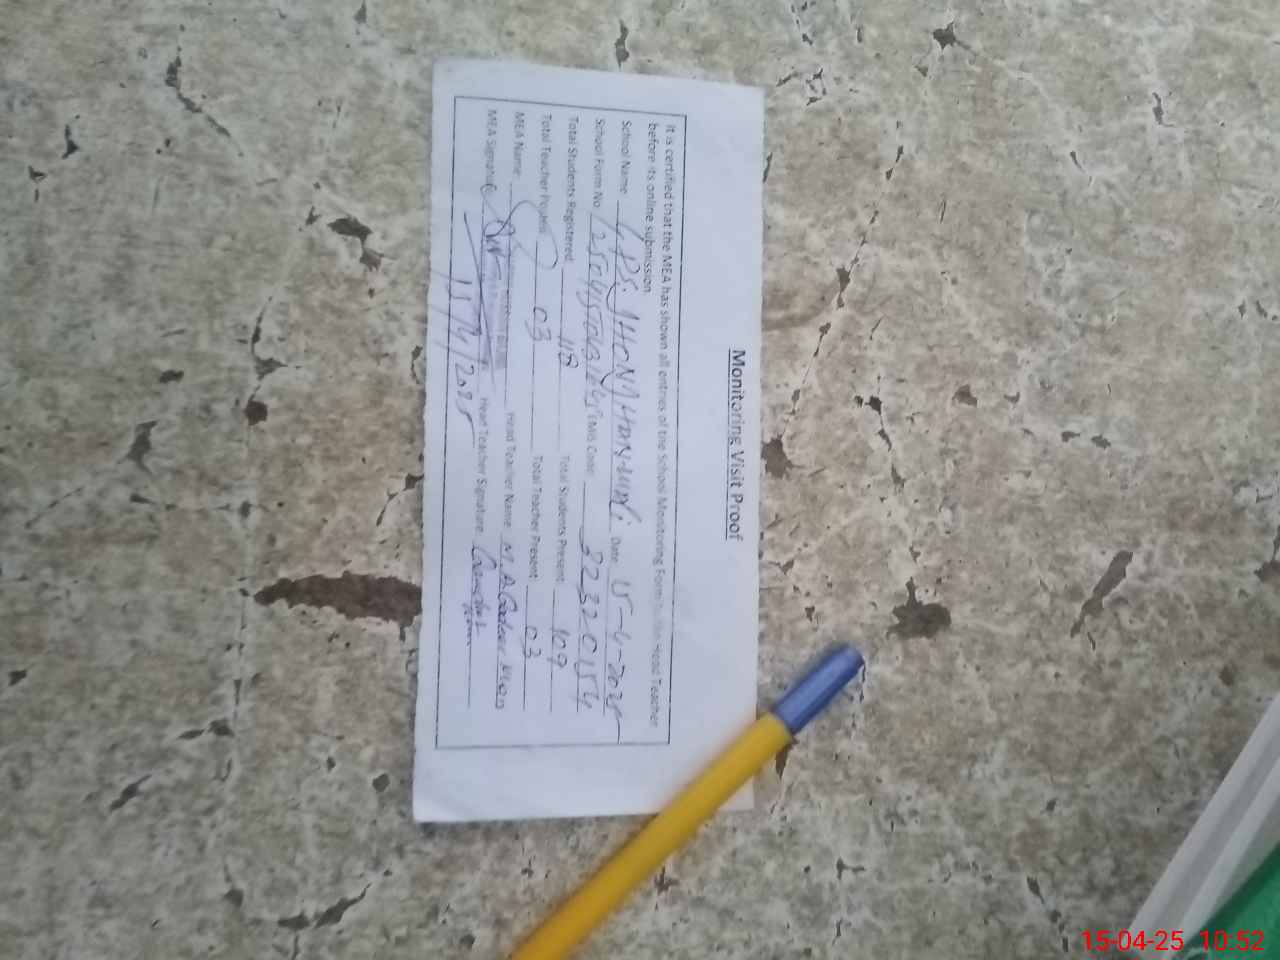 Monitoring Visit Proof
It is certified that the MEA has shown all entries of the School Monitoring Form to the Head Teacher
before its online submission.
School Name Date 15-4-2025
School Form No EMIS Code: 32320154
Total Students Registered 118 Total Students Present 109
Total Teacher Posted 03 Total Teacher Present 03
MEA Name: Head Teacher Name: M.A
MEA Signature Head Teacher Signature:
15/4/2025
15-04-25 10:52